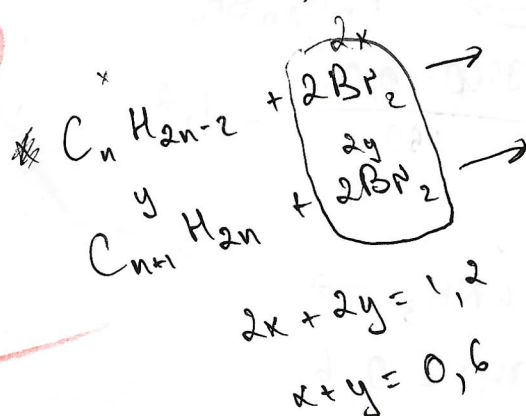 x 2x
* CₙH₂ₙ₋₂ + 2Br₂ →
y 2y
Cₙ₊₁H₂ₙ + 2Br₂ →
2x + 2y = 1,2
x + y = 0,6